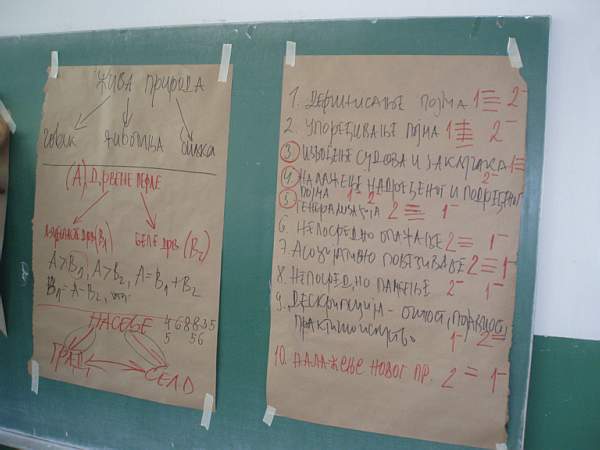 ЖИВА ПРИРОДА
човек животиња биљка
(А) ДРВЕНЕ ПЕРЛЕ
(B₁) БЕЛЕ ДРВ. (B₂)
A>B₁, A>B₂, A=B₁+B₂
B₁=A-B₂,
НАСЕЉЕ
ГРАД СЕЛО
1. ДЕФИНИСАЊЕ ПОЈМА 1 2
2. УПОРЕЂИВАЊЕ ПОЈМА 1 2
③ ИЗВОЂЕЊЕ СУДОВА И ЗАКЉУЧАКА 1
④ НАЛАЖЕЊЕ НАДРЕЂЕНОГ И ПОДРЕЂЕНОГ 2
ПОЈМА 1 2
⑤ ГЕНЕРАЛИЗАЦИЈА 2 1
6. НЕПОСРЕДНО ОПАЖАЊЕ 2 1
7. АСОЦИЈАТИВНО ПОВЕЗИВАЊЕ 2 1
8. НЕПОСРЕДНО ПАЖЊЕЊЕ 2 1
9. ДЕСКРИПЦИЈА -
1 2
10. НАЛАЖЕЊЕ НОВОГ ПР. 2 1